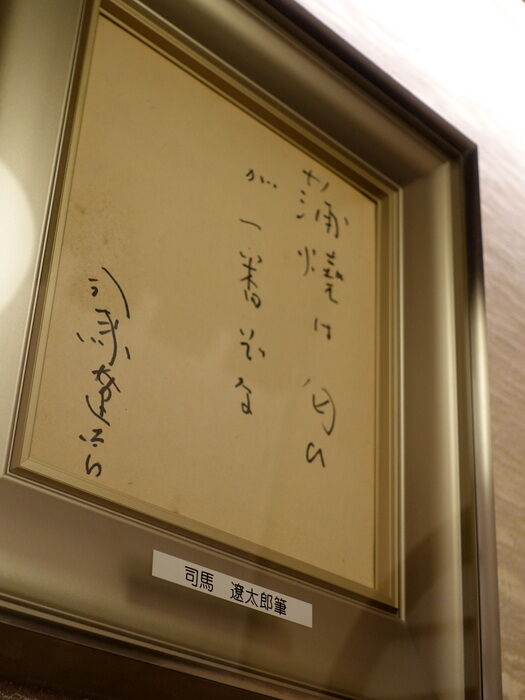 蒲燒は匂ひ
が一番ぞな
司馬遼太郎
司馬 遼太郎筆